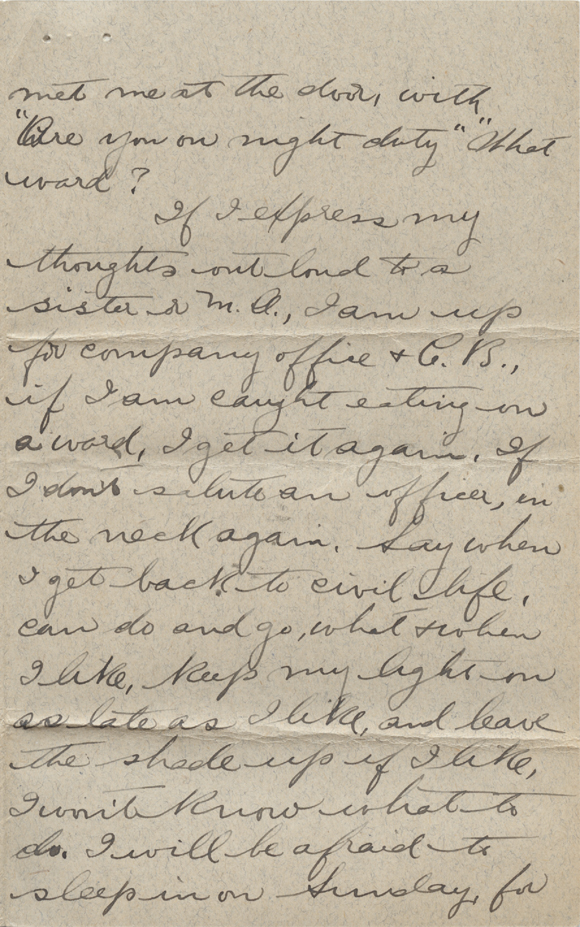 met me at the door, with
"Are you on night duty" "What
ward?
If I express my
thoughts out loud to a
sister or M.O., I am up
for company office & C.B.,
if I am caught eating on
a ward, I get it again. If
I don't salute an officer, in
the neck again. Say when
I get back to civil life,
can do and go, what & when
I like, keep my light on
as late as I like, and leave
the shade up if I like,
I won't know what to
do. I will be afraid to
sleep in on Sunday, for